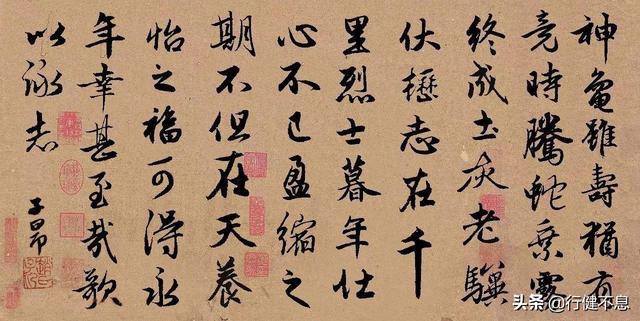 神龜雖壽猶有
竟時騰蛇乘霧
終成土灰老驥
伏櫪志在千
里烈士暮年壮
心不已盈縮之
期不但在天養
怡之福可得永
年幸甚至哉歌
以詠志
子昂
头条 @行健不息